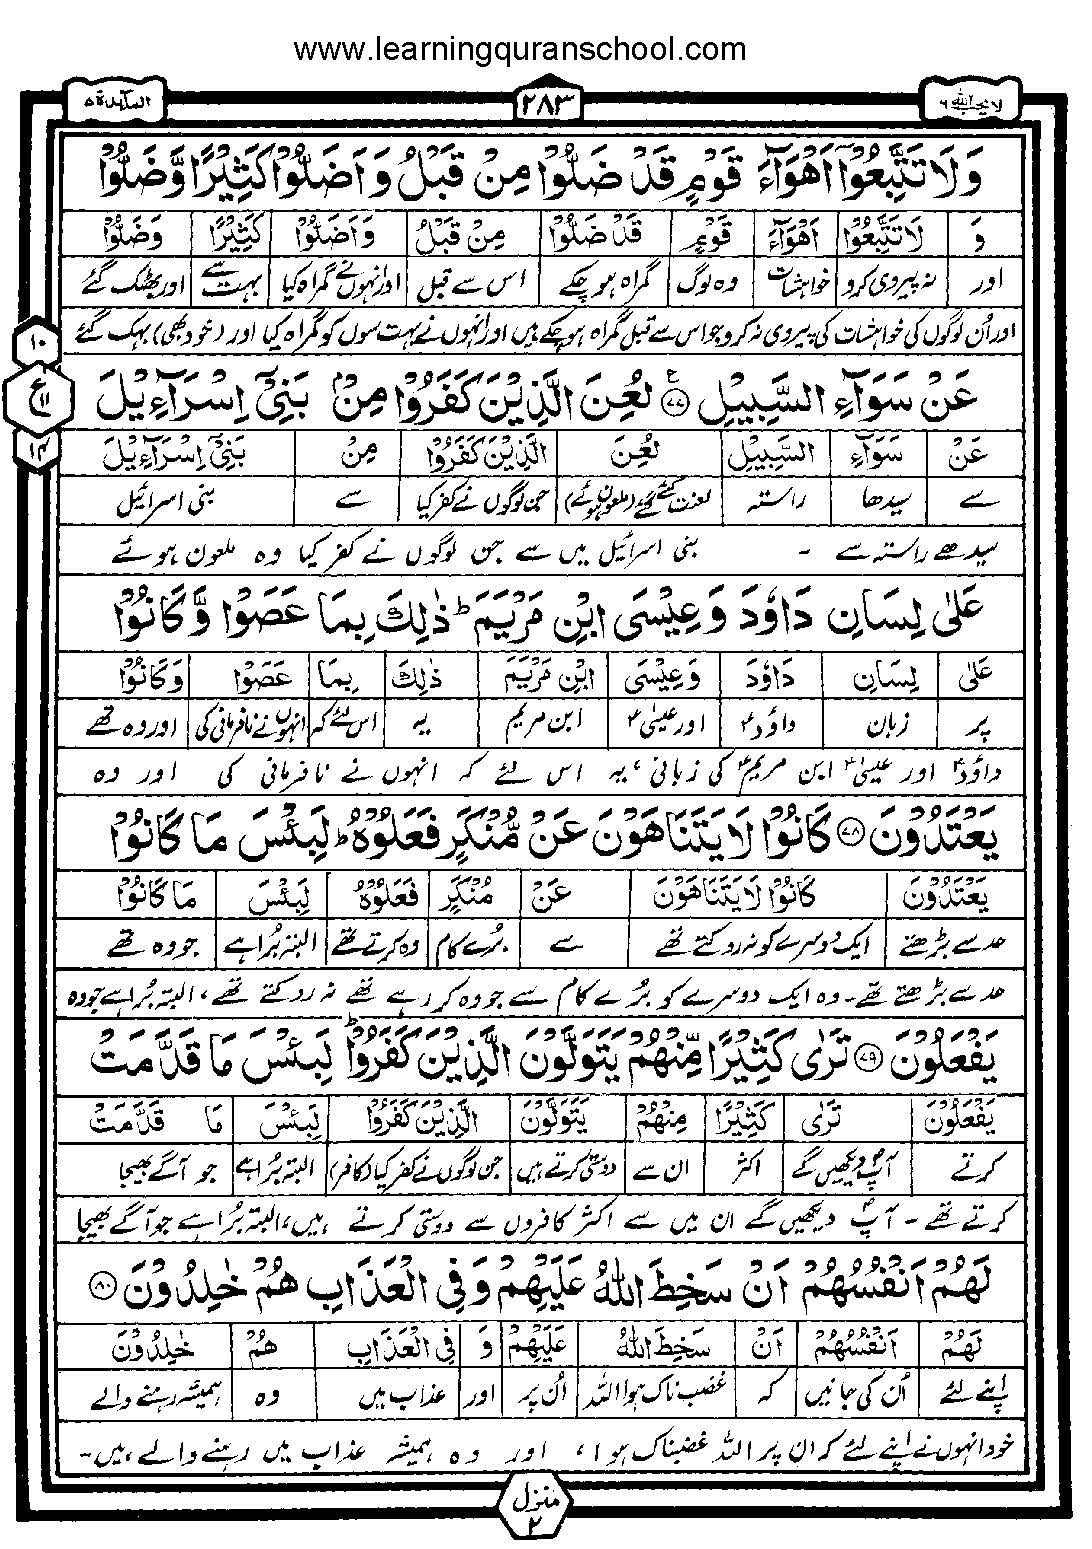 www.learningquranschool.com
لا يحب الله ٦
٢٨٣
المائدة ٥
وَلَا تَتَّبِعُوْٓا اَهْوَآءَ قَوْمٍ قَدْ ضَلُّوْا مِنْ قَبْلُ وَاَضَلُّوْا كَثِيْرًا وَّضَلُّوْا
وَ لَا تَتَّبِعُوْٓا اَهْوَآءَ قَوْمٍ قَدْ ضَلُّوْا مِنْ قَبْلُ وَاَضَلُّوْا كَثِيْرًا وَضَلُّوْا
اور نہ پیروی کرو خواہشات وہ لوگ گمراہ ہو چکے اس سے قبل اور انہوں نے گمراہ کیا بہت سے اور بھٹک گئے
اور اُن لوگوں کی خواہشات کی پیروی نہ کرو جو اس سے قبل گمراہ ہو چکے ہیں اور انہوں نے بہت سوں کو گمراہ کیا اور (خود بھی) بہک گئے
١٠
ع ١١
١٤
عَنْ سَوَآءِ السَّبِيْلِ ٧٧ لُعِنَ الَّذِيْنَ كَفَرُوْا مِنْۢ بَنِيْٓ اِسْرَآءِيْلَ
عَنْ سَوَآءِ السَّبِيْلِ لُعِنَ الَّذِيْنَ كَفَرُوْا مِنْ بَنِيْٓ اِسْرَآءِيْلَ
سے سیدھا راستہ لعنت کئے گئے (ملعون ہوئے) جن لوگوں نے کفر کیا سے بنی اسرائیل
سیدھے راستہ سے ۔ بنی اسرائیل میں سے جن لوگوں نے کفر کیا وہ ملعون ہوئے
عَلٰى لِسَانِ دَاوٗدَ وَعِيْسَى ابْنِ مَرْيَمَ ؕ ذٰلِكَ بِمَا عَصَوْا وَّكَانُوْا
عَلٰى لِسَانِ دَاوٗدَ وَعِيْسَى ابْنِ مَرْيَمَ ذٰلِكَ بِمَا عَصَوْا وَكَانُوْا
پر زبان داؤدؑ اور عیسٰیؑ ابن مریم یہ اس لئے کہ انہوں نے نافرمانی کی اور وہ تھے
داؤدؑ اور عیسٰیؑ ابن مریمؑ کی زبانی، یہ اس لئے کہ انہوں نے نافرمانی کی اور وہ
يَعْتَدُوْنَ ٧٨ كَانُوْا لَا يَتَنَاهَوْنَ عَنْ مُّنْكَرٍ فَعَلُوْهُ ؕ لَبِئْسَ مَا كَانُوْا
يَعْتَدُوْنَ كَانُوْا لَا يَتَنَاهَوْنَ عَنْ مُنْكَرٍ فَعَلُوْهُ لَبِئْسَ مَا كَانُوْا
حد سے بڑھتے ایک دوسرے کو نہ روکتے تھے سے بُرے کام وہ کرتے تھے البتہ بُرا ہے جو وہ تھے
حد سے بڑھتے تھے۔ وہ ایک دوسرے کو بُرے کام سے جو وہ کر رہے تھے نہ روکتے تھے، البتہ بُرا ہے جو وہ
يَفْعَلُوْنَ ٧٩ تَرٰى كَثِيْرًا مِّنْهُمْ يَتَوَلَّوْنَ الَّذِيْنَ كَفَرُوْا ؕ لَبِئْسَ مَا قَدَّمَتْ
يَفْعَلُوْنَ تَرٰى كَثِيْرًا مِنْهُمْ يَتَوَلَّوْنَ الَّذِيْنَ كَفَرُوْا لَبِئْسَ مَا قَدَّمَتْ
کرتے آپؐ دیکھیں گے اکثر ان سے دوستی کرتے ہیں جن لوگوں نے کفر کیا (کافر) البتہ بُرا ہے جو آگے بھیجا
کرتے تھے ۔ آپؐ دیکھیں گے ان میں سے اکثر کافروں سے دوستی کرتے ہیں، البتہ بُرا ہے جو آگے بھیجا
لَهُمْ اَنْفُسُهُمْ اَنْ سَخِطَ اللّٰهُ عَلَيْهِمْ وَفِي الْعَذَابِ هُمْ خٰلِدُوْنَ ٨٠
لَهُمْ اَنْفُسُهُمْ اَنْ سَخِطَ اللّٰهُ عَلَيْهِمْ وَ فِي الْعَذَابِ هُمْ خٰلِدُوْنَ
اپنے لئے اُن کی جانیں کہ غضب ناک ہوا اللہ اُن پر اور عذاب میں وہ ہمیشہ رہنے والے
خود انہوں نے اپنے لئے کہ ان پر اللہ غضبناک ہوا، اور وہ ہمیشہ عذاب میں رہنے والے ہیں۔
منزل ٢